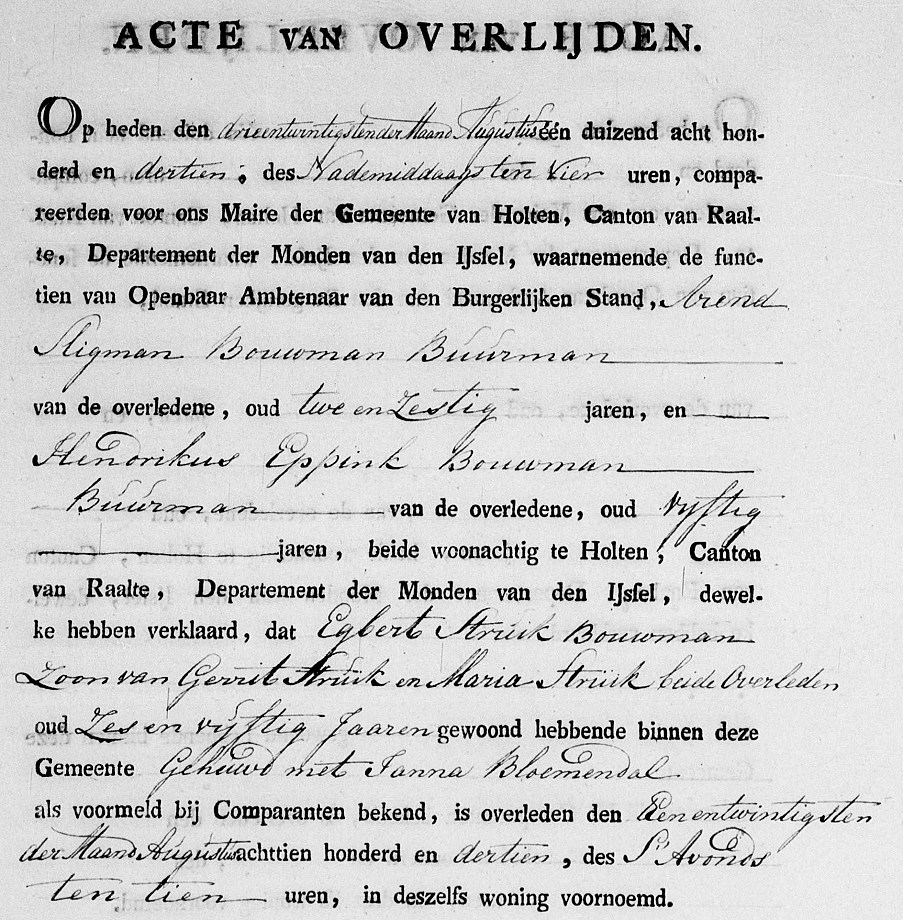 ACTE VAN OVERLIJDEN.
Op heden den drieentwintigsten der Maand Augustus één duizend acht hon-
derd en dertien, des Nademiddaags ten Vier uren, compa-
reerden voor ons Maire der Gemeente van Holten, Canton van Raal-
te, Departement der Monden van den IJssel, waarnemende de func-
tien van Openbaar Ambtenaar van den Burgerlijken Stand, Arend
Sligman Bouwman Buurman
van de overledene, oud twe en Zestig jaren, en
Hendrikus Eppink Bouwman
Buurman van de overledene, oud vyftig
jaren, beide woonachtig te Holten, Canton
van Raalte, Departement der Monden van den IJssel, dewel-
ke hebben verklaard, dat Egbert Struik Bouwman
Zoon van Gerrit Struik en Maria Struik beide Overleden
oud Zes en vyftig Jaaren gewoond hebbende binnen deze
Gemeente Gehuwd met Janna Bloemendal
als voormeld bij Comparanten bekend, is overleden den Eenentwintigsten
der Maand Augustus achttien honderd en dertien, des S'Avonds
ten tien uren, in deszelfs woning voornoemd.